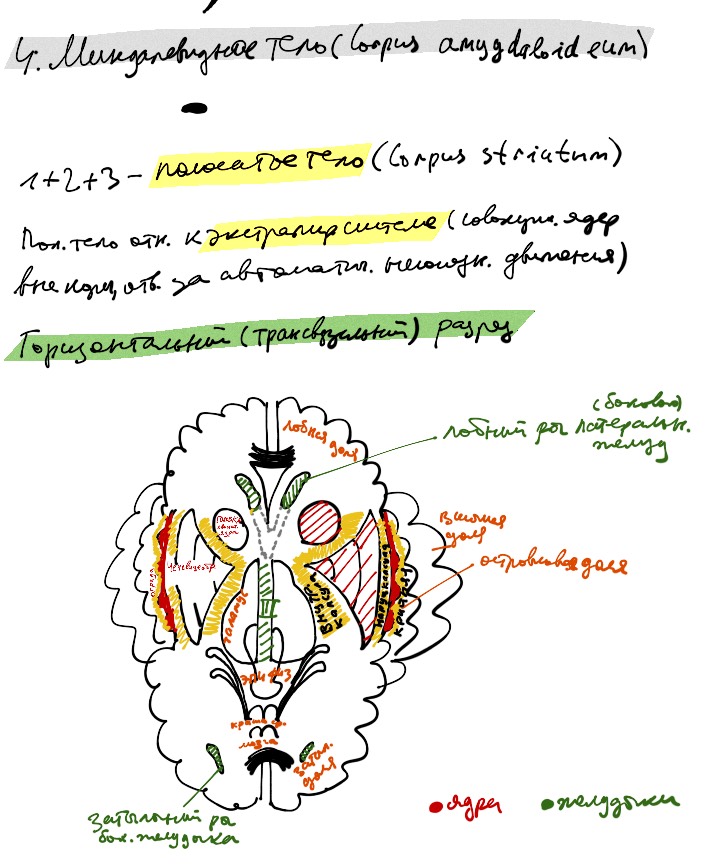 4. Миндалевидное тело (Corpus amygdaloideum)
1+2+3 - полосатое тело (Corpus striatum)
Пол. тело отн. к экстрапир системе (совокупн. ядер
вне кори, отв. за автоматич. неосозн. движения)
Горизонтальный (трансверзальный) разрез
(боковой)
лобный рог латеральн.
желуд
лобная доля
височная
доля
островковая доля
ограда
чечевицеобр
таламус
III
Внутр.
капсула
наружная
эпифиз
крыша ср.
мозга
затыл.
доля
Затылочный рог
бок. желудочка
ядра
желудочки